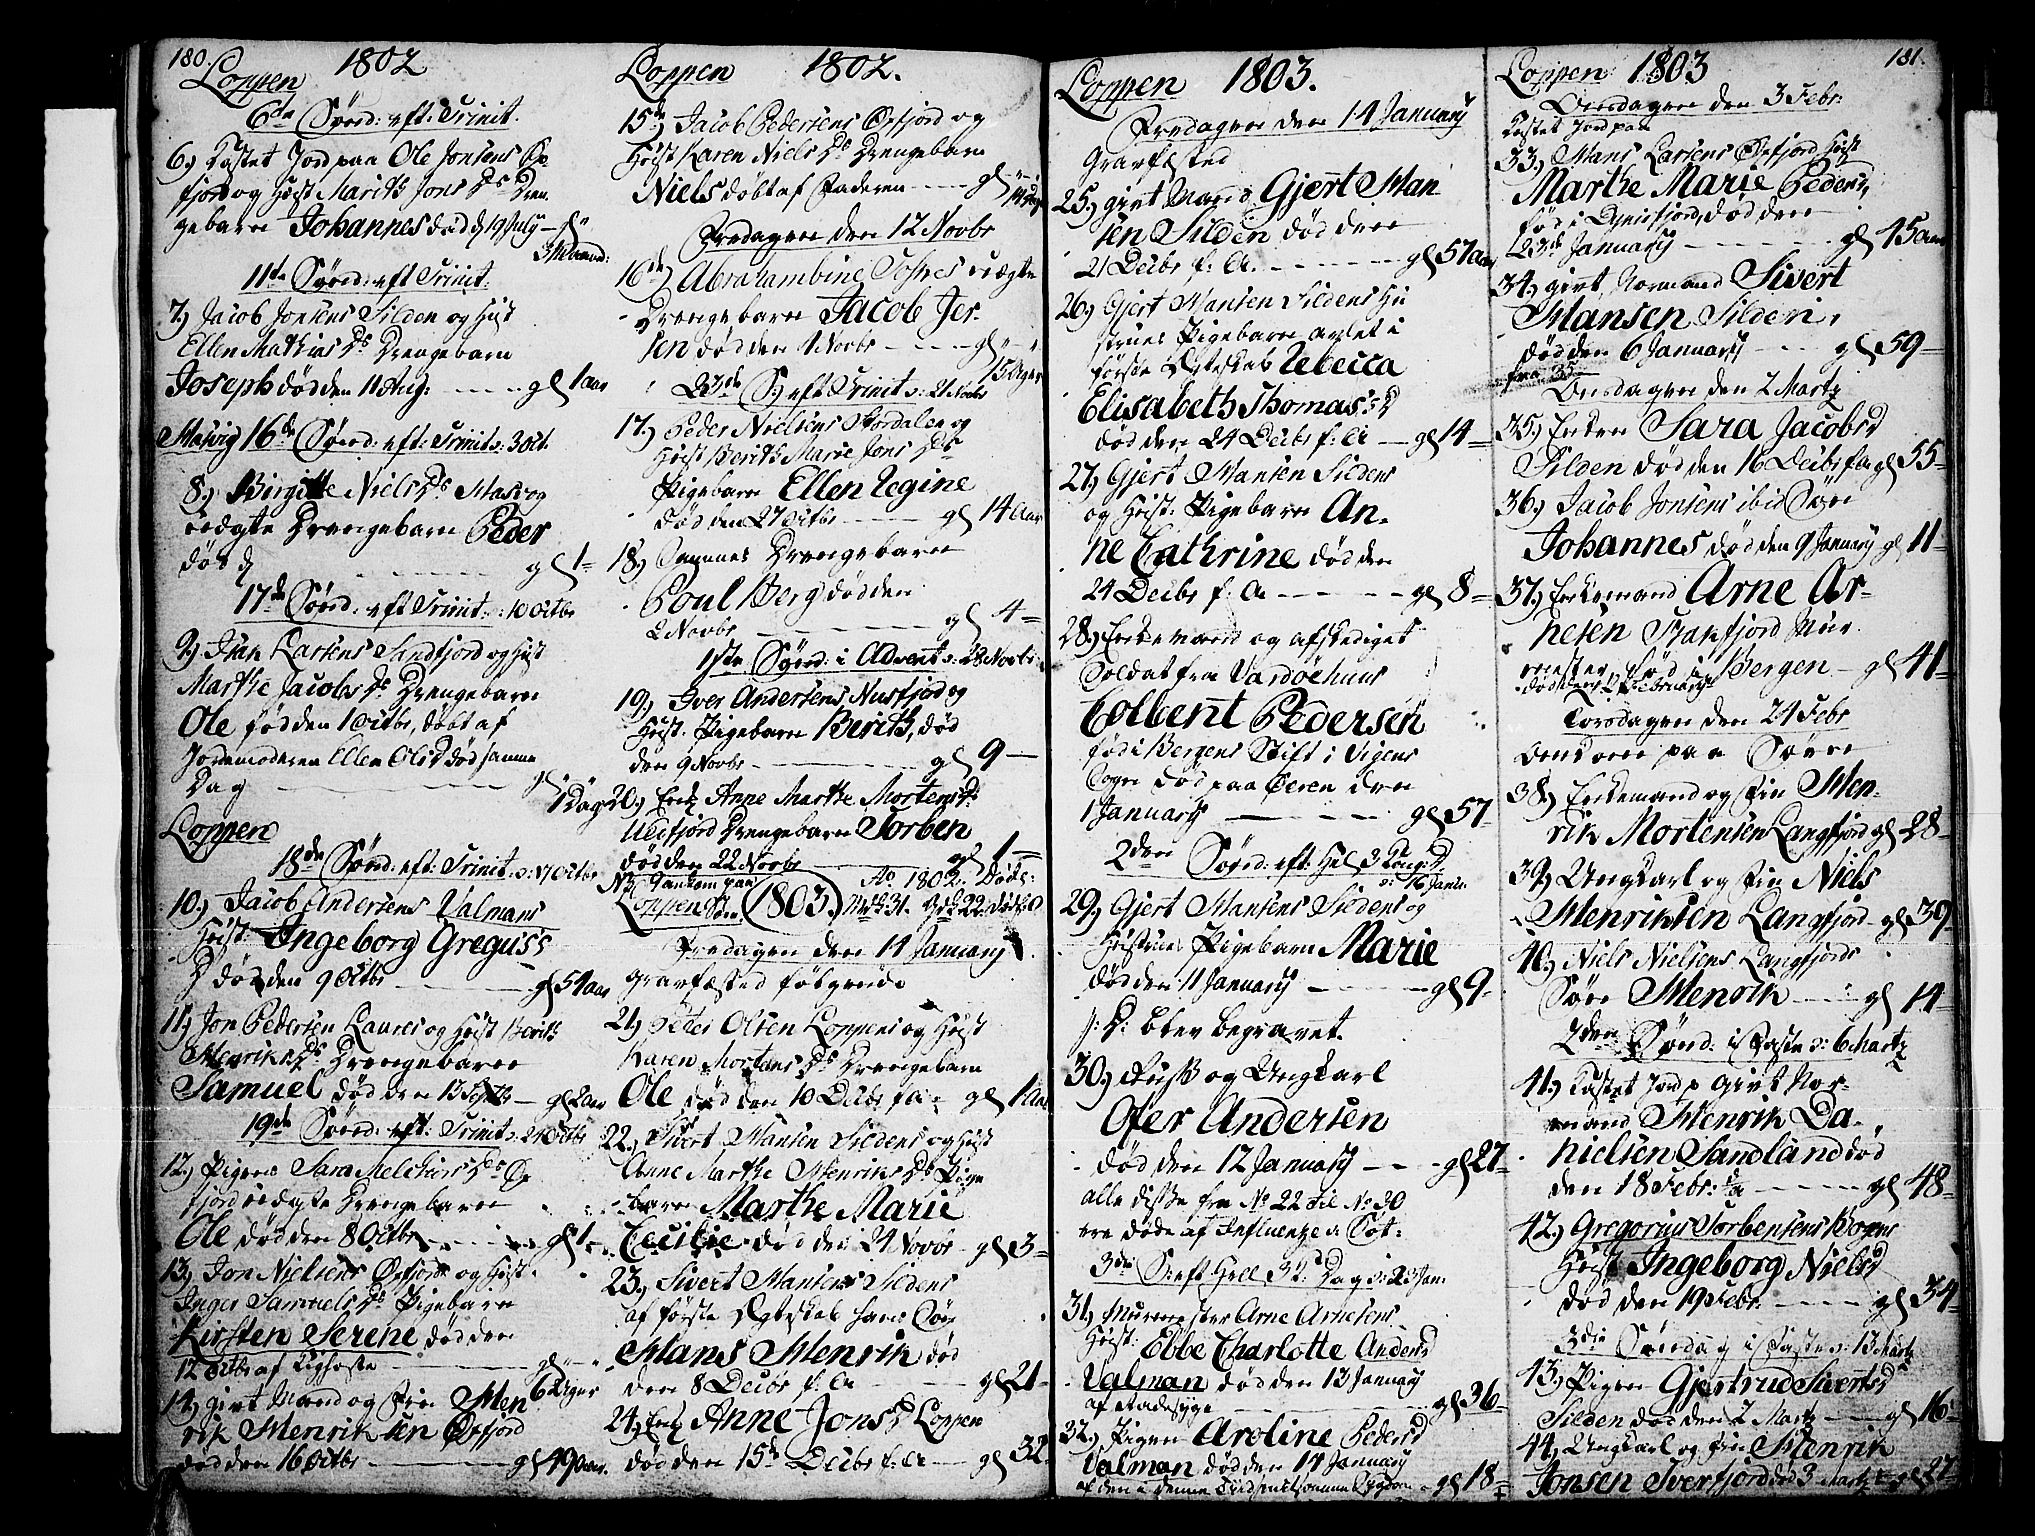 180.
Loppen 1802
6te Sønd: eft: Trinit.
6.) Kastet Jord paa Ole Jonsens Øx
fjord og Hust Marith Jons Ds Dren
gebarn Johannes død d 19 July - gl
3 Maaned:
11te Sønd: eft Trinit:
7.) Jacob Jonsens Silden og Hust
Ellen Mathias Ds Drengebarn
Joseph død den 11 Aug: - gl 1 aar
Hasvig 16de Sønd: eft: Trinit: 3 Oct.
8.) Birgitte Niels Ds Hasvog
uægte Drengebarn Peder
død d - gl 1
17de Sønd: eft Trinit: 10 Octbr
9.) Isan Larsens Sandfjord og Hust
Marthe Jacobs Ds Drengebarn
Ole død den 1 Octbr, døbt af
Jordemoderen Ellen Ols D død samme
Dag - gl
1 Dag
Loppen
18de Sønd: eft: Trinit: 17 Octbr
10.) Jacob Andersens Valmans
Hust: Ingeborg Greguss
D død den 9 Octbr - gl 54 aar
11.) Jon Pedersen Laures og Hust Berith
Henriks Ds Drengebarn
Samuel død den 13 Septbr - gl 2 aar
19de Sønd: eft: Trinit: 24 Octbr
12.) Pigen Sara Melchiors Ds Øx
fjord uægte Drengebarn
Ole død den 8 Octbr - gl 1
13.) Jon Nielsens Øxfjord og Hust
Inger Samuels Ds Pigebarn
Kirsten Serene død den
12 Octbr af Kighoste - gl
6 Uger
14.) givt Mand og Fin Hen
rik Henriksen Øxfjord
død den 16 Octbr - gl 49 aar.
Loppen 1802.
15de) Jacob Pedersens Øxfjord og
Hust Karen Niels Ds Drengebarn
Niels døbt af Faderen - gl
14 Dage
Fredagen den 12 Novbr
16de) Abrahambine Tofres uægte
Drengebarn Jacob Jer
sen død den 4 Novbr - gl
15 Uger
23de S. eft Trinit: 21 Novbr
17.) Peder Nielsens Stordalen og
Hust Berith Marie Jons Ds
Pigebarn Ellen Regine
død den 27 Octbr - gl 14 Aar
18.) Sammes Drengebarn
Poul Berg død den
2 Novbr - gl 4
1ste Sønd: i Advent: 28 Novbr
19.) Iver Andersens Nusfjord og
Hust: Pigebarn Berith, død
den 9 Novbr - gl 9
20.) Enk: Anne Marthe Mortens D
Ulvfjord Drengebarn Torben
død den 22 Novbr - gl 1
NB. ankom paa
Loppen 1803. Ao. 1802. Døde:
Mk. 31. 22.
Fredagen den 14 January
gravfæsted følgende
21.) Peter Olsen Loppens og Hust
Karen Mortens Ds Drengebarn
Ole død den 10 Decbr f. A - gl 1 Aar
22.) Sivert Hansen Sildens og Hust
Anne Marthe Henriks Ds Pige
barn Marthe Marie
Cecilie død den 24 Novbr - gl 3
23.) Sivert Hansens Sildens
af første Ægteskab hans Søn
Hans Henrik død
den 8 Decbr f: A - gl 21
24.) Enk: Anne Jons D Loppen
død den 15de Decbr f: A - gl 32
Loppen 1803.
Fredagen den 14 January
gravfæsted
25.) givt Mand Gjert Han
sen Silden død den
21 Decbr f: A. - gl 57 Aar
26.) Gjert Hansen Sildens Hu
struens Pigebarn avlet i
første Ægteskab Rebecca
Elisabeth Thomas D
død den 24 Decbr f: A - gl 14
27.) Gjert Hansen Sildens
og Hust: Pigebarn An
ne Cathrine død den
24 Decbr f: A - gl 8
28.) Enkemand og afskediget
Soldat fra Vardøehuus
Colbent Pedersen
fød i Bergens Stift i Vigens
Sogn død paa Øeren den
1 January - gl 57
2den Sønd: eft: Hel 3 Kong: D
16 Janu.
29.) Gjert Hansens Sildens og
Hustrues Pigebarn Marie
død den 11 January - gl 9
p: D: blev begravet.
30.) Russ og Ungkarl
Ofer Andersen
død den 12 January - gl 27
alle disse fra No. 22 til No 30
ere døde af Influenze Sot:
3die S: eft Hell 3 K: Dag: 23 Jan.
31.) Murmester Arne Arnesens
Hust: Ebbe Charlotte Anders D
Valman død den 13 January
af Radesyge - gl 36
32.) Pigen Aroline Peders D
Valman død den 17 January
af den i denne Tiid Sygdom - gl 18
181.
Loppen 1803
Onsdagen den 3 Febr:
Kastet Jord paa
33.) Hans Larsens Øxfjord Hust
Marthe Marie Peders
fød i Qvenfjord, død den
23de January - gl 45 aar
34.) givt, Normand Sivert
Hansen Silden,
død den 6 January - gl 59
fra 35
Onsdagen den 2 Martz
35.) Enken Sara Jacobs D
Silden død den 16 Decbr f A gl 55
36.) Jacob Jonsens ibid Søn
Johannes død den 9 January gl 11
37.) Enkemand Arne Ar
nesen Skaffjord Mur
mester fød i Bergen - gl 41
død den 12 February
Torsdagen den 24 Febr
Jord paa Søren
38.) Enkemand og Fin Hen
rik Mortensen Langfjord gl 28
39.) Ungkarl og Fin Niels
Henriksen Langfjord gl 39
40.) Niels Nielsens Langfjords
Søn Henrik - gl 14
2den Sønd: i Faste: 6 Martz
41.) Kastet Jord p givt Nor
mand Henrik Da
nielsen Sandland død
den 18 Febr: - gl 48
42.) Gregorius Torbensens Bogens
Hust Ingeborg Niels D
død den 19 Febr. - gl 34
3die Søndag i Faste: 13 Martz
43.) Pigen Gjertrud Siverts D
Silden død den 2 Martz - gl 16
44.) Ungkarl og Fin Henrik
Jonsen Sverfjord død 3 Martz gl 27